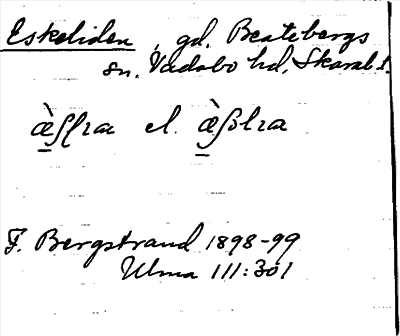 Eskeliden, gd. Beatebergs
sn. Vadsbo hd, Skarab. l.
el.
F. Bergstrand 1898-99
Ulma 111:301